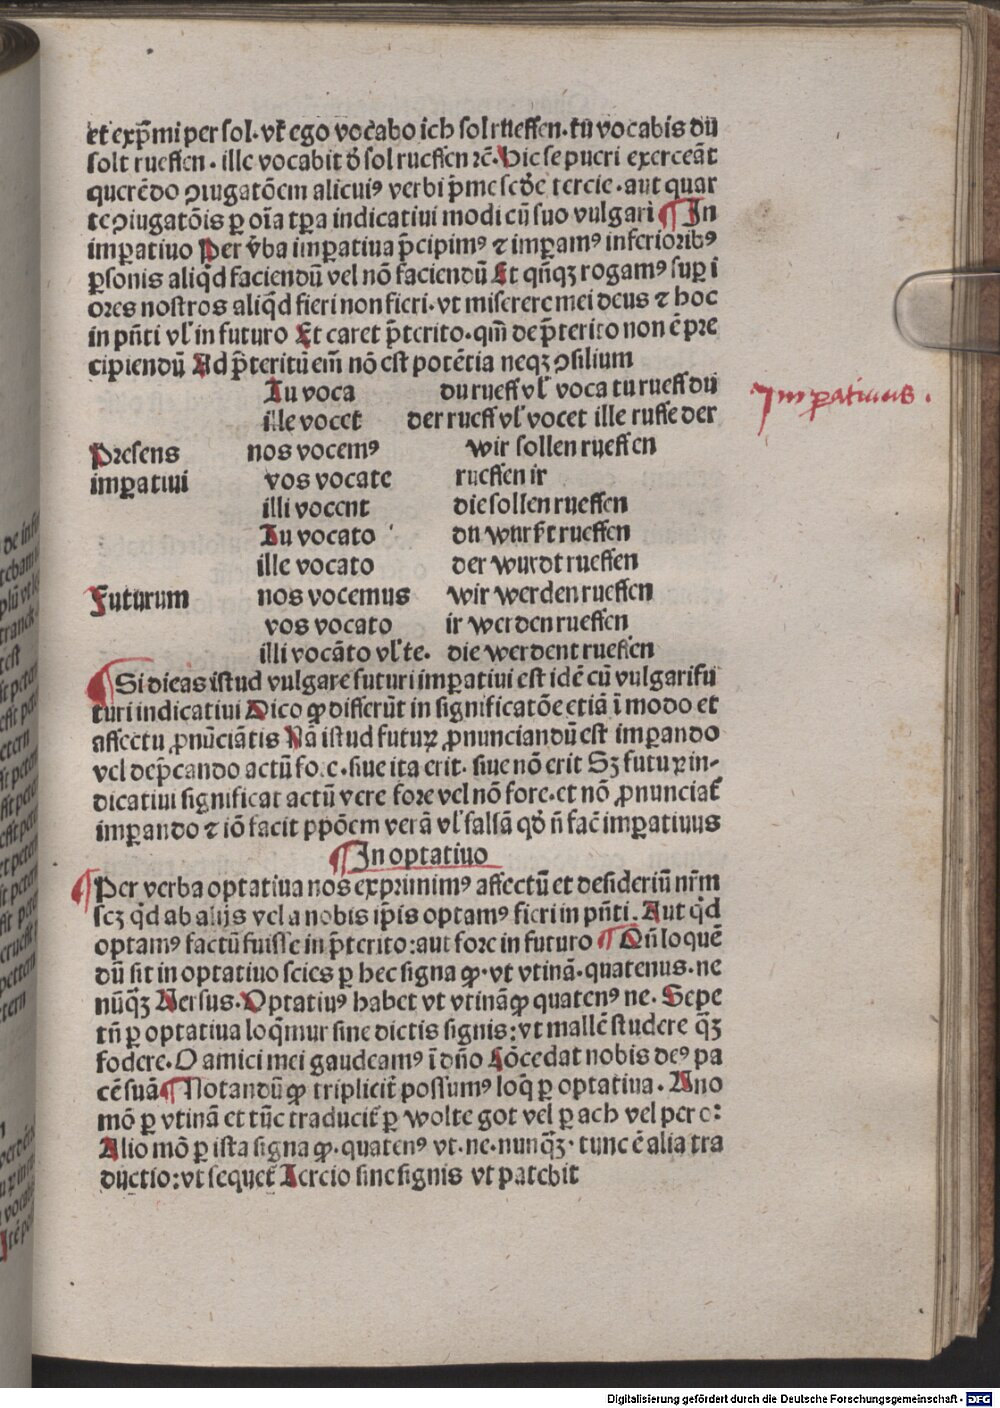 et exp̄mi per sol· vt̄ ego vocabo ich sol rueffen· tū vocabis dū
solt rueffen · ille vocabit d̄ sol rueffen ⁊c̄· Hic se pueri exerceāt
querēdo ꝯiugatōem alicuiꝰ verbi p̄me scd̄e tercie · aut quar
te ꝯiugatōis ꝑ oīa tꝑa indicatiui modi cū suo vulgari ¶ In
imꝑatiuo Per v̄ba imꝑatiua p̄cipimꝰ ⁊ imꝑamꝰ inferioribꝰ
ꝑsonis aliqd̄ faciendū vel nō faciendū Et qn̄qꝫ rogamꝰ suꝑ i
ores nostros aliqd̄ fieri non fieri· vt miserere mei deus ⁊ hoc
in pn̄ti vl̄ in futuro Et caret p̄terito· qm̄ de p̄terito non ē pre
cipiendū Ad p̄teritū em̄ nō est potētia neqꝫ ꝯsilium
Tu voca du rueff vl̄ voca tu rueff dū
ille vocet der rueff vl̄ vocet ille ruffe der
Presens nos vocemꝰ wir sollen rueffen
imꝑatiui vos vocate rueffen ir
illi vocent die sollen rueffen
Tu vocato du wurst rueffen
ille vocato der wurdt rueffen
Futurum nos vocemus wir werden rueffen
vos vocato ir werden rueffen
illi vocāto vl̄ te· die werdent rueffen
Imꝑatiuus .
¶ Si dicas istud vulgare futuri imꝑatiui est idē cū vulgari fu
turi indicatiui Dico ꝙ differūt in significatōe etiā ī modo et
affectu ꝓnūciātis Nā istud futuꝝ ꝓnunciandū est imꝑando
vel dep̄cando actū fo.c. siue ita erit· siue nō erit Sꝫ futuꝝ in-
dicatiui significat actū vere fore vel nō fore· et nō ꝓnunciat̄
imꝑando ⁊ iō facit ꝓpōem verā vl̄ falsā qd̄ n̄ fac̄ imꝑatiuus
¶ In optatiuo
¶ Per verba optatiua nos exprimimꝰ affectū et desideriū nr̄m
scꝫ qd̄ ab alijs vel a nobis ip̄is optamꝰ fieri in pn̄ti. Aut qd̄
optamꝰ factū fuisse in p̄terito: aut fore in futuro ¶ Qn̄ loquē
dū sit in optatiuo scies ꝑ hec signa ꝙ· vt vtinā· quatenus· ne
nūqꝫ Versus· Optatiuꝰ habet vt vtinā ꝙ quatenꝰ ne· Sepe
tn̄ ꝑ optatiua loqm̄ur sine dictis signis: vt mallē studere qꝫ̄
fodere· O amici mei gaudeamꝰ ī dn̄o Cōcedat nobis deꝰ pa
cē suā ¶ Notandū ꝙ triplicit̄ possumꝰ loq̄ ꝑ optatiua· Vno
mō ꝑ vtinā et tūc traducit̄ ꝑ wolte got vel ꝑ ach vel per o:
Alio mō ꝑ ista signa ꝙ· quatenꝰ vt· ne· nunqꝫ̄· tunc ē alia tra
ductio: vt sequet̄ Tercio sine signis vt patebit
Digitalisierung gefördert durch die Deutsche Forschungsgemeinschaft - DFG